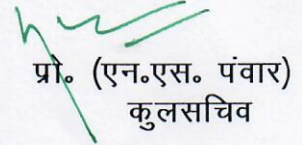 प्रो॰ (एन॰एस॰ पंवार)
कुलसचिव